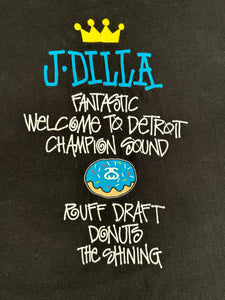 J·DILLA
FANTASTIC
WELCOME TO DETROIT
CHAMPION SOUND
RUFF DRAFT
DONUTS
THE SHINING